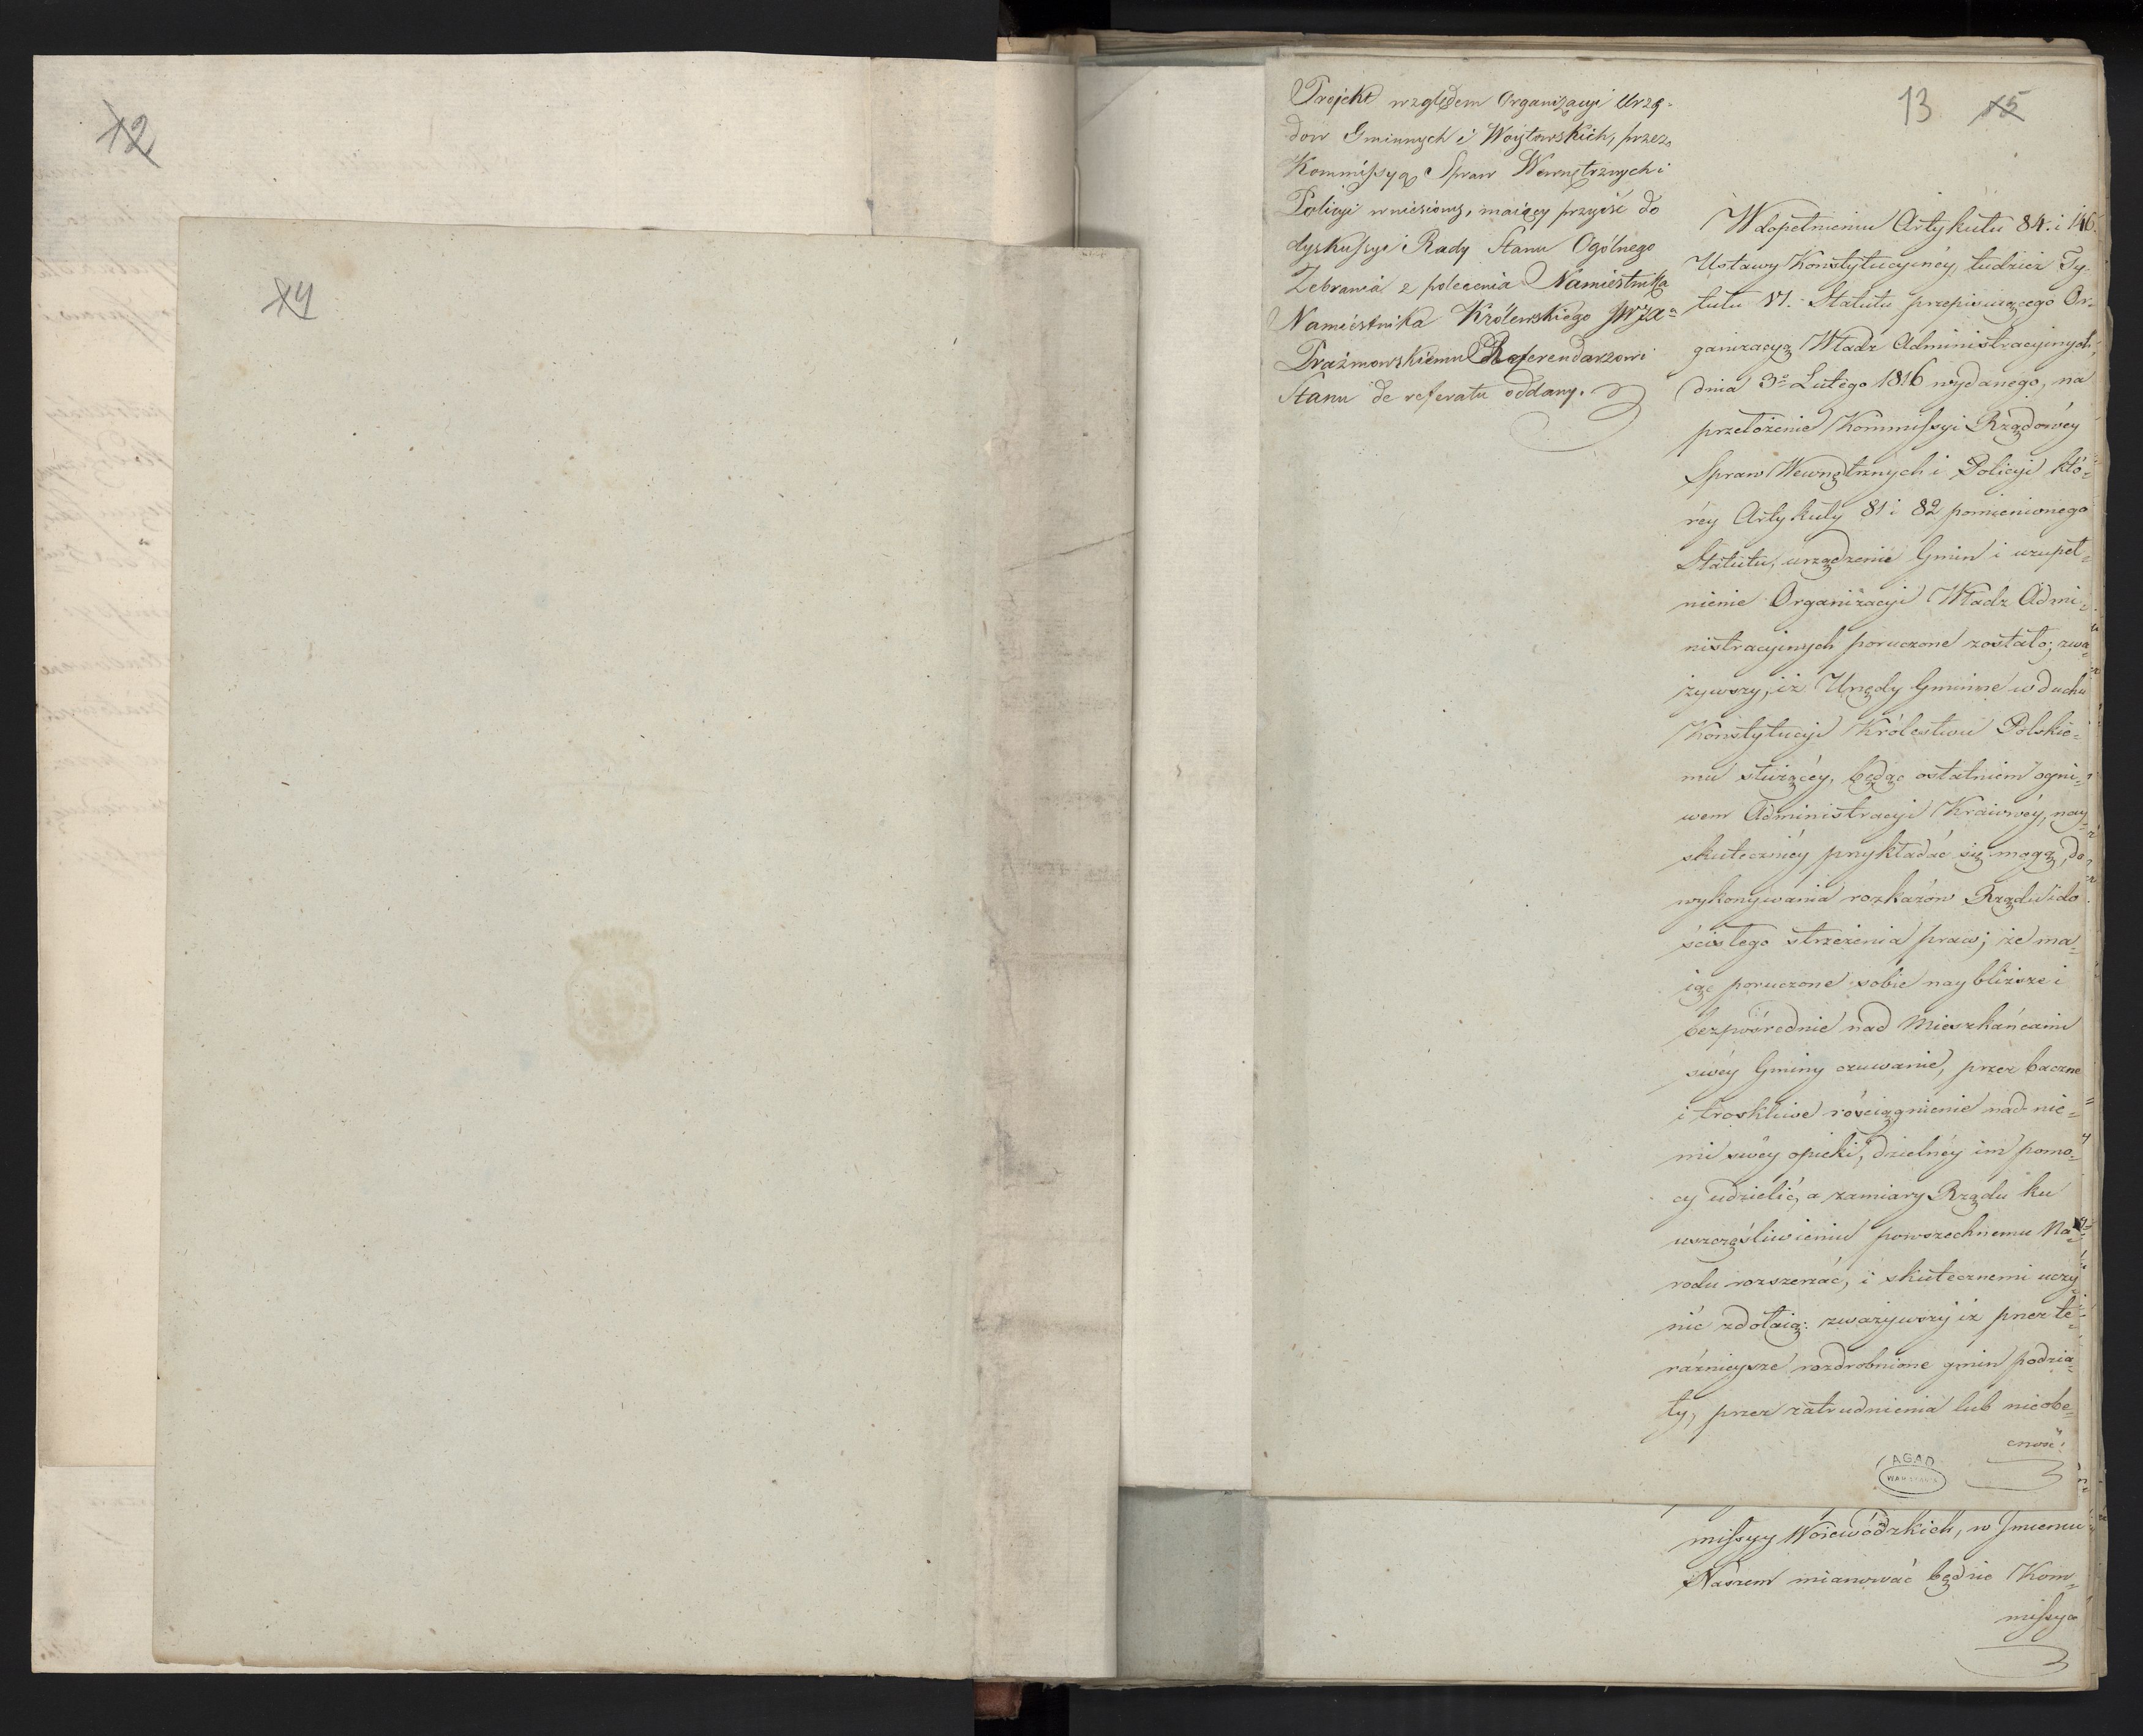 12
14
13 15
Projekt względem Organizacyi Urzę-
dow Gminnych i Woytowskich, przez
Kommissyą Spraw Wewnętrznych i
Policyi wniesiony, maiący przyiść do
dyskussyi Rady Stanu Ogólnego
Zebrania z polecenia Namiestnika
Namiestnika Królewskiego
Prażmowskiemu Referendarzowi
Stanu do referatu oddany.
W dopełnieniu Artykułu 84. i 146.
Ustawy Konstytucyiney, tudzież Ty-
tułu VI. Statutu przepisuiącego Or-
ganizacyą Władz Administracyinych,
dnia 3º Lutego 1816 wydanego, na
przełożenie Kommissyi Rządowéy
Spraw Wewnętrznych i Policyi któ-
réy Artykuły 81 i 82 pomienionego
Statutu, urządzenie Gmin i uzupeł-
nienie Organizacyi Władz Admi-
nistracyinych poruczone zostało; zwa-
żywszy, iż Urzędy Gminne w duchu
Konstytucyi Królestwu Polskie-
mu służącéy, będąc ostatniem ogni-
wem Administracyi Kraiowéy, nay-
skuteczniéy przykładać się mogą, do
wykonywania rozkazów Rządu i do
ścisłego strzeżenia praw; że ma-
iąc poruczone sobie naybliższe i
bezpośrednie nad Mieszkańcami
swéy Gminy czuwanie, przez baczne
i troskliwe rościągnienie nad nie-
mi swéy opieki, dzielnéy im pomo-
cy udzielić, a zamiary Rządu ku
uszczęśliwieniu powszechnemu Na-
rodu rozszerzać, i skutecznemi uczy-
nić zdołaią: zważywszy iż przez te-
raźnieysze rozdrobnione gmin podzia-
ły, przez zatrudnienia lub nieobe-
cność
AGAD
WARSZAWA
missyy Woiewódzkich, w Imieniu
Naszem mianować będzie Kom-
missya